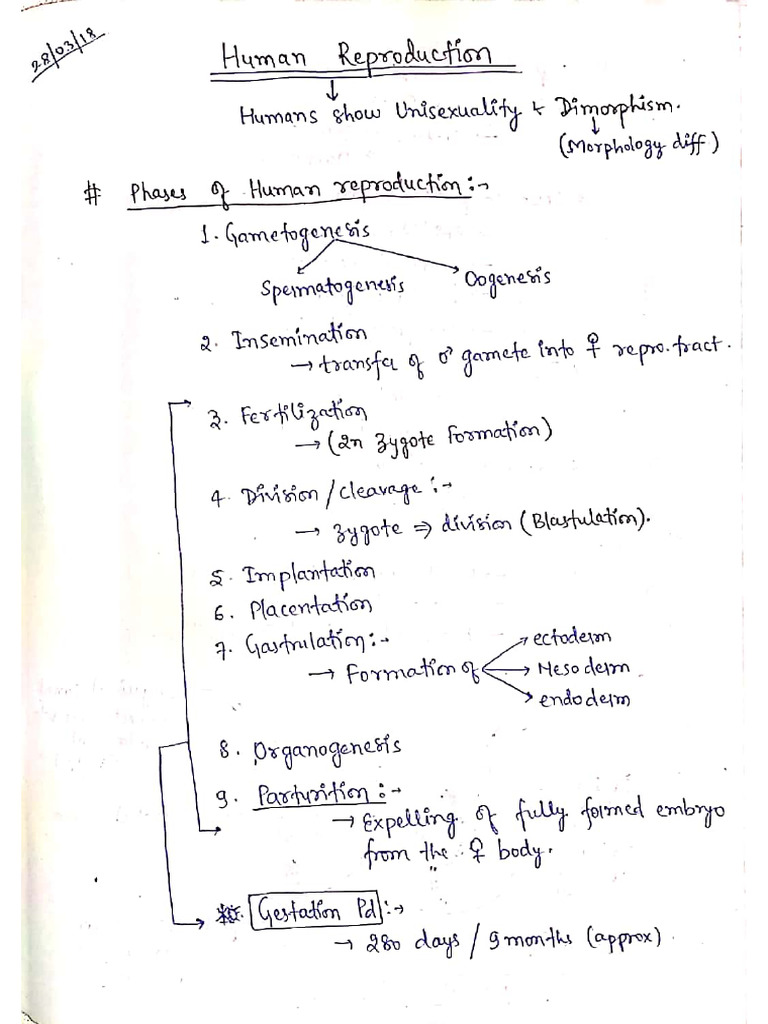 28/03/18
Human Reproduction
↓
Humans show Unisexuality & Dimorphism.
↓
(Morphology diff)
# Phases of Human reproduction :-
1. Gametogenesis
Spermatogenesis Oogenesis
2. Insemination
→ transfer of ♂ gamete into ♀ repro. tract.
3. Fertilization
→ (2n zygote formation)
4. Division / cleavage :-
→ zygote ⇒ division (Blastulation).
5. Implantation
6. Placentation
7. Gastrulation :-
→ Formation of → ectoderm
→ Mesoderm
→ endoderm
8. Organogenesis
9. Parturition :-
→ Expelling of fully formed embryo
from the ♀ body.
Gestation Pd :-
→ 280 days / 9 months (approx)